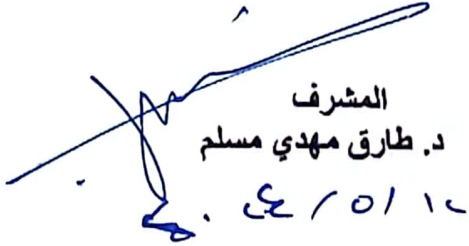 المشرف
د. طارق مهدي مسلم
٢٠٢٤/٥/١٢